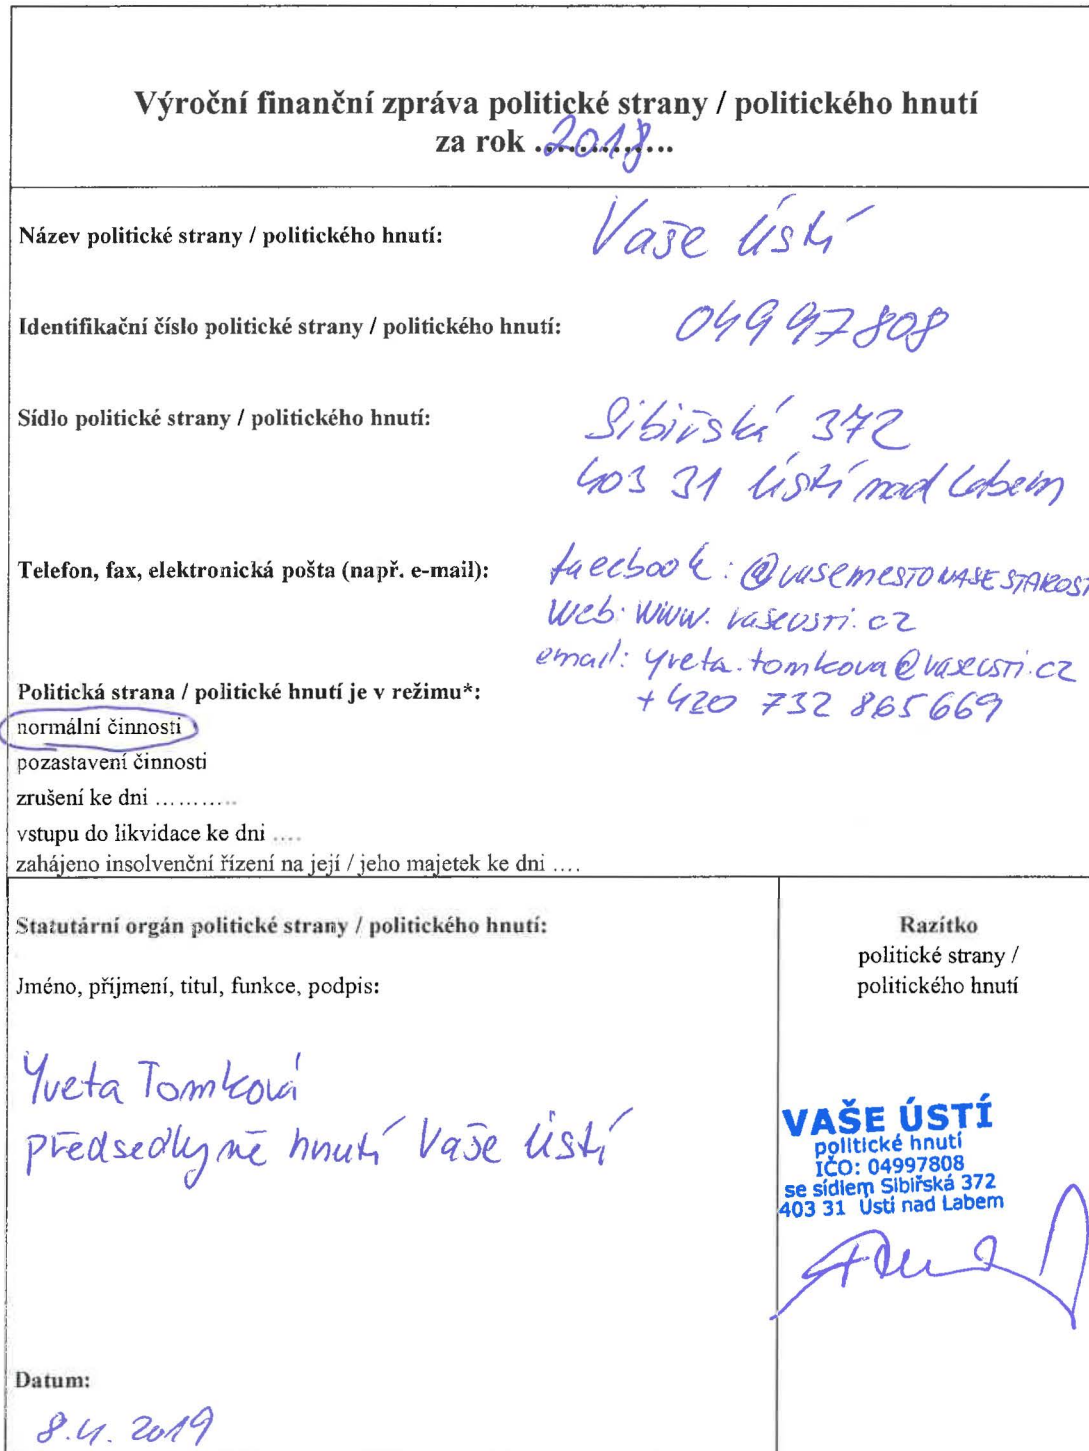 Výroční finanční zpráva politické strany / politického hnutí
za rok .2018...
Název politické strany / politického hnutí: Vaše Ústí
Identifikační číslo politické strany / politického hnutí: 04997808
Sídlo politické strany / politického hnutí: Sibiřská 372
403 31 Ústí nad Labem
Telefon, fax, elektronická pošta (např. e-mail): facebook: @VASEMESTOVASESTAROST
web: www.vaseusti.cz
email: yveta.tomkova@vaseusti.cz
+420 732 865669
Politická strana / politické hnutí je v režimu*:
normální činnosti
pozastavení činnosti
zrušení ke dni ..........
vstupu do likvidace ke dni ....
zahájeno insolvenční řízení na její / jeho majetek ke dni ....
Statutární orgán politické strany / politického hnutí:
Jméno, příjmení, titul, funkce, podpis:
Yveta Tomková
předsedkyně hnutí Vaše Ústí
Razítko
politické strany /
politického hnutí
VAŠE ÚSTÍ
politické hnutí
IČO: 04997808
se sídlem Sibiřská 372
403 31 Ústí nad Labem
Datum:
8.4. 2019